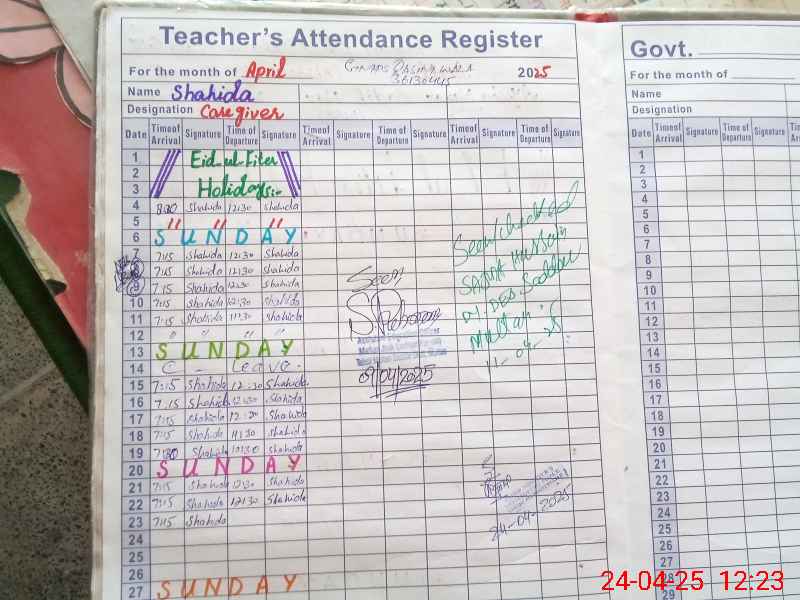 Teacher's Attendance Register
For the month of April 2025
36130445
Name Shahida
Designation Caregiver
Date Time of Arrival Signature Time of Departure Signature Time of Arrival Signature Time of Departure Signature Time of Arrival Signature Time of Departure Signature
1 Eid-ul-Fiter
2
3 Holidays:-
4 8:00 Shahida 12:30 Shahida
5 " " "
6 SUNDAY
7 7:15 Shahida 12:30 Shahida
7:15 Shahida 12:30 Shahida
9 7:15 Shahida 12:30 Shahida
10 7:15 Shahida 12:30 Shahida
11 7:15 Shahida 11:30 Shahida
12 " " " "
13 SUNDAY
14 C- Leave.
15 7:15 Shahida 12:30 Shahida
16 7:15 Shahida 12:30 Shahida
17 7:15 Shahida 12:30 Shahida
18 7:15 Shahida 11:30 Shahida
19 Shahida Shahida
20 SUNDAY
21 7:15 Shahida 12:30 Shahida
22 7:15 Shahida 12:30 Shahida
23 7:15 Shahida
24
25
26
27 SUNDAY
Seen
09/04/2025
Seen/checked
Hussain
Multan
11-04-25
24-04-2025
Govt.
For the month of
Name
Designation
Date Time of Arrival Signature Time of Departure Signature Time of Arrival
1
2
3
4
5
6
7
8
9
10
11
12
13
14
15
16
17
18
19
20
21
22
23
24
25
26
27
28
29
24-04-25 12:23